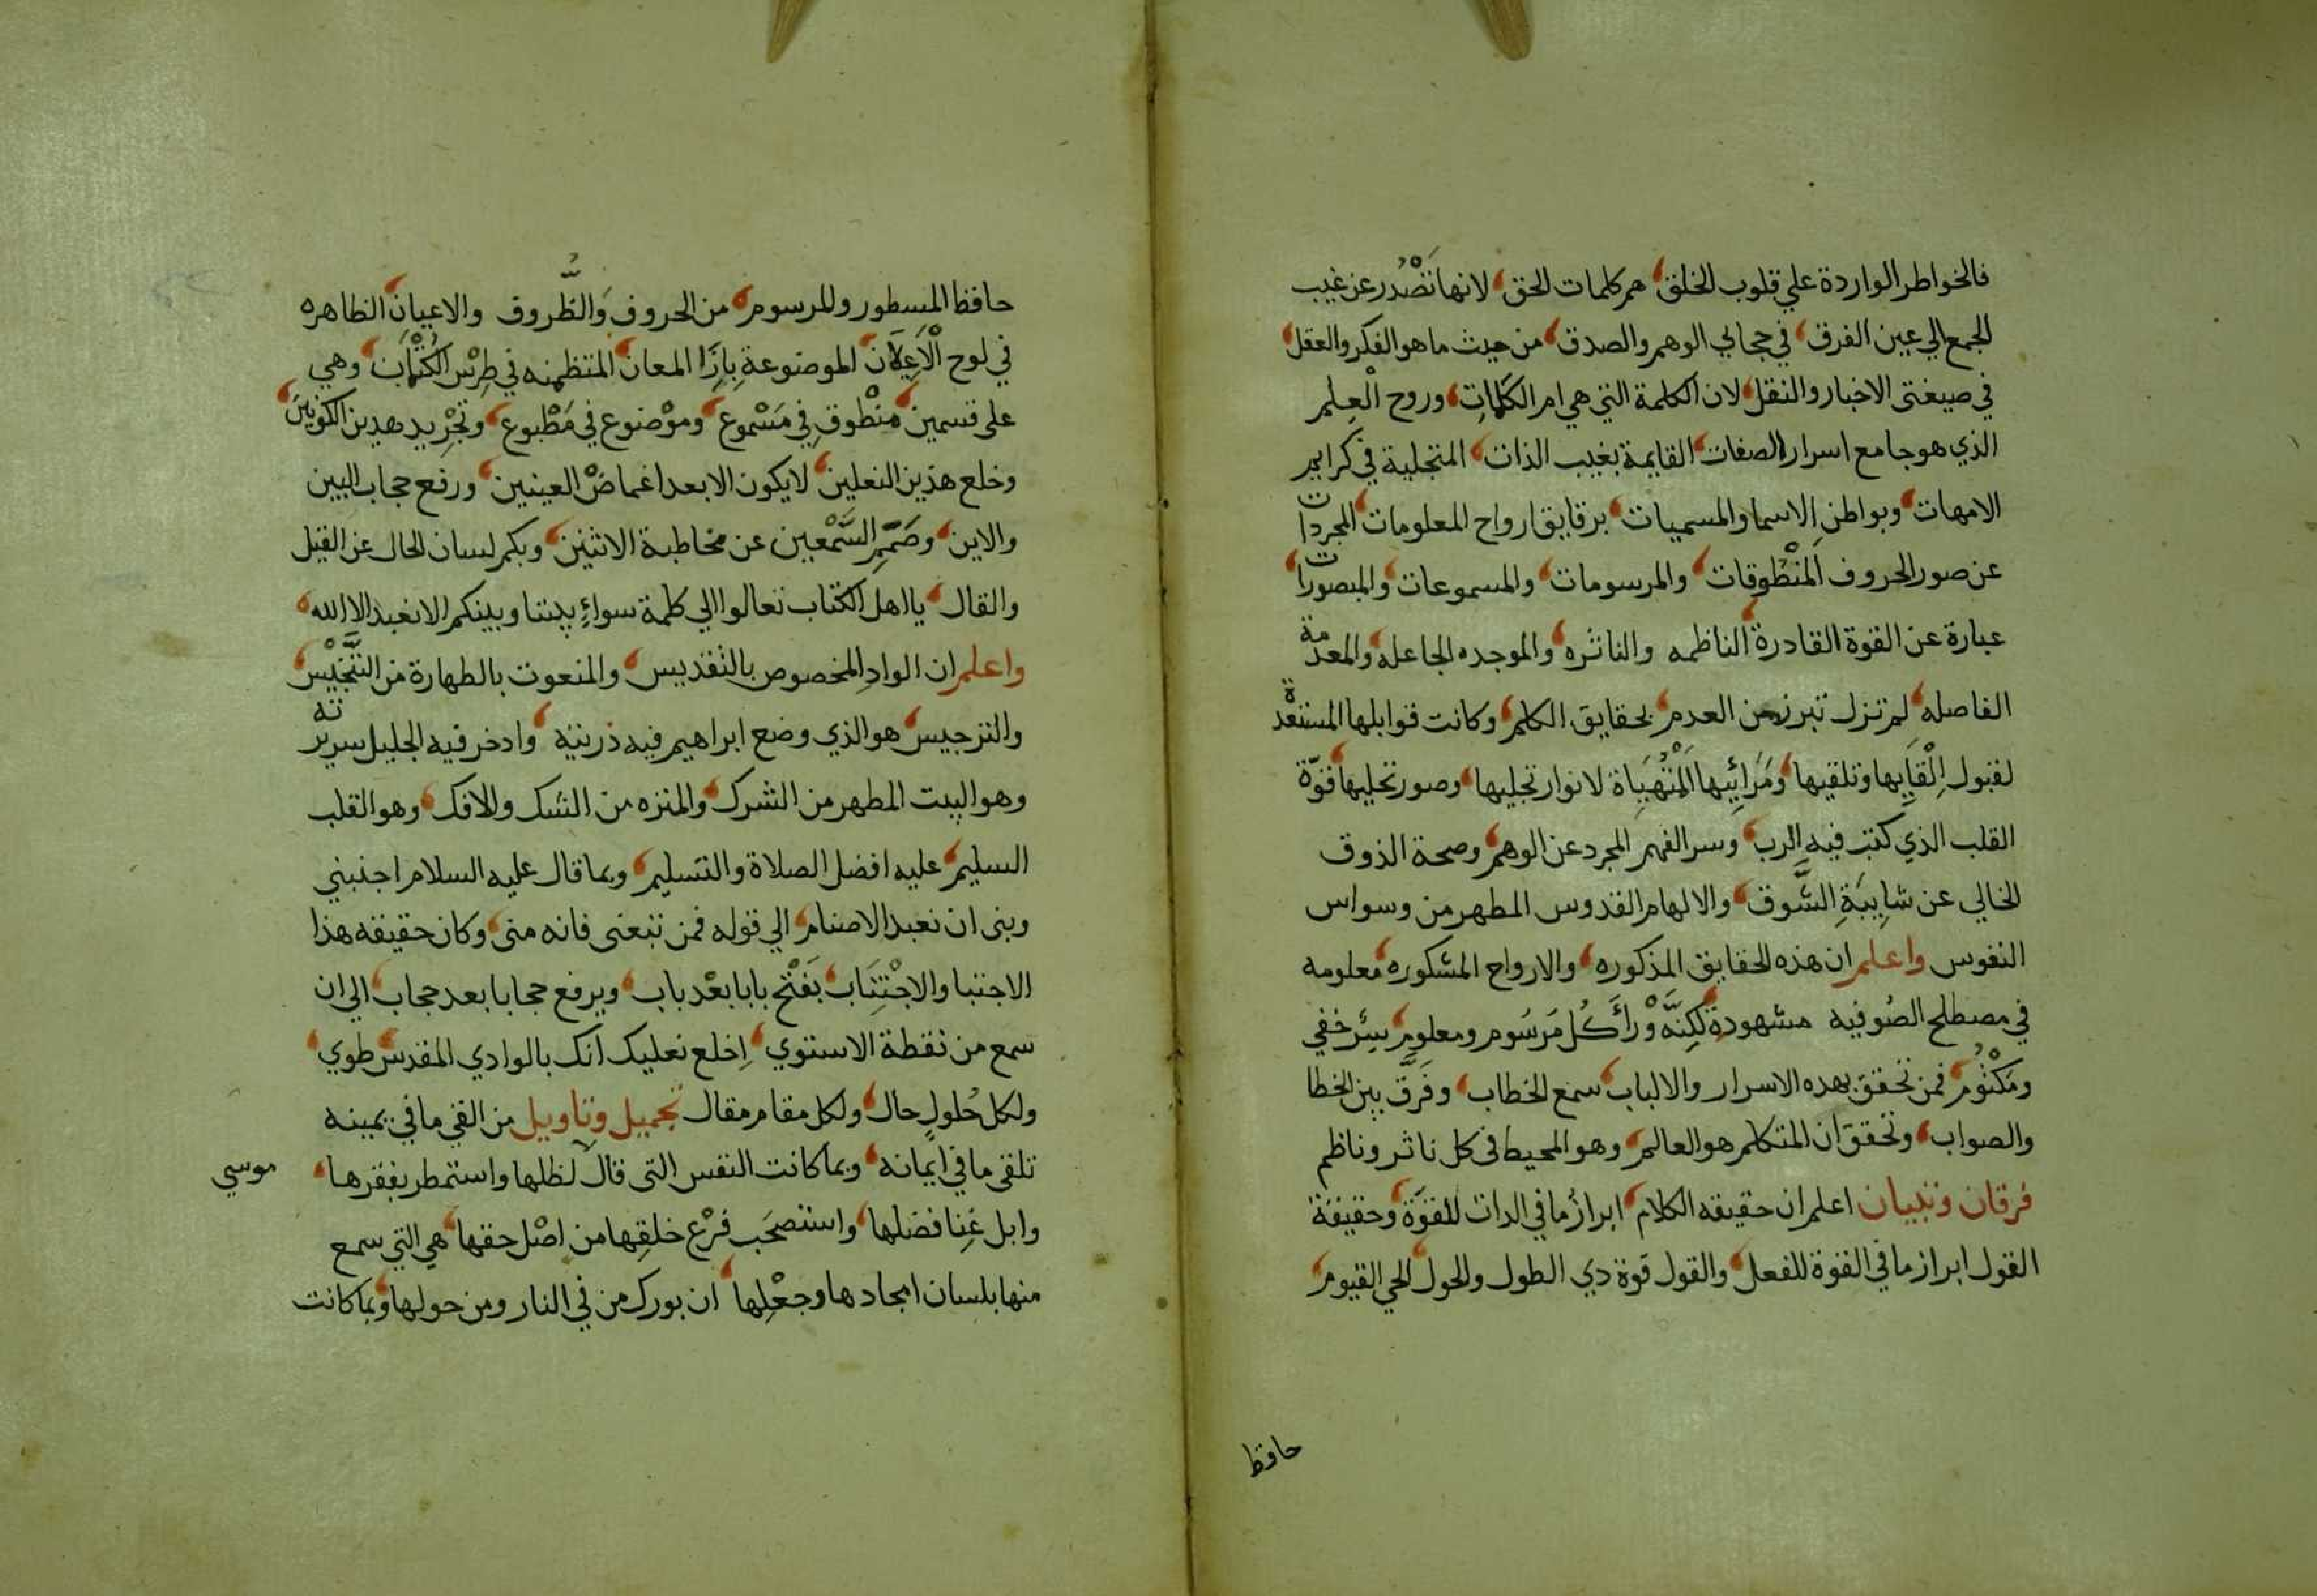 فالخواطر الواردة علي قلوب الخلق هم كلمات الحق لانها تَصْدُر عن غيب
الجمع الي عين الفرق في مجالي الوهم والصدق من حيث ما هو الفكر والعقل
في صيغتى الاخبار والنقل لان الكلمة التي هي ام الكلمات وروح الْعِلم
الذي هو جامع اسرار الصفات القايمة بغيب الذات المتجلية في كرايم
الامهات وبواطن الاسما والمسميات برقايق ارواح المعلومات المجردات
عن صور الحروف المَنْطُوقات والمرسومات والمسموعات والمبصورات
عبارة عن القوة القادرة الناظمه والناثره والموجده الجاعله والمعدمة
الفاصله لم تزل تبرز من العدم بحقايق الكلم وكانت قوابلها المستعدة
لقبول اِلْقَايِها وتلقيها ومَرَائِيها الْمُتهَيَاة لانوار تجليها وصور تحليها قوّة
القلب الذي كتب فيه الرب وسر الفهم المجرد عن الوهم وصحة الذوق
الخالي عن شايِبَةِ الشَّوق والالهام القدوس المطهر من وسواس
النفوس واعلم ان هذه الحقايق المذكوره والارواح المشكوره معلومه
في مصطلح الصُوفيه مشهودة لكِنَّه وْرَأَ كُل مَرسُوم ومعلوم سِرّ خفي
ومَكْتُوُم فمن تحقق بهده الاسرار والالباب سمع الخطاب وفَرَّق بين الخطا
والصواب وتحقق ان المتكلم هو العالم وهو المحيط فى كل ناثر وناظم
فرقان وتبيان اعلم ان حقيقه الكلام ابرازُ ما في الدات للقوَّة وحقيقة
القول ابراز ما في القوة للفعل والقول قوة دي الطول والحول الحي القيوم
حافظ
حافظ المسطور والمرسوم من الحروف والظُّروف والاعيان الظاهره
في لوح الْاَعِلَان الموضوعة بِازَا المعان المنتظمنه في طِرْس الكُتْمَان وهي
على قسمين منْطوق في مَسْموع وموْضوع في مَطْبوع وتَجْرِيد هدين الكونَين
وخلع هذين النعلين لا يكون الا بعد اغماض العينين ورفع حجاب البين
والاين وصَمَم السَّمْعين عن مخاطبة الاثنين وبكم لسان الحال عن القيل
والقال يا اهل الكتاب تعالوا الي كلمة سواءٍ بيننا وبينكم الا نعبد الا الله
واعلم ان الوادِ المخصوص بالتقديس والمنعوت بالطهارة من التَّنجيْس
والترجيس هو الذي وضع ابراهيم فيه ذريته وادخر فيه الجليل سريرته
وهو البيت المطهر من الشرك والمنزه من الشك والافك وهو القلب
السليم عليه افضل الصلاة والتسليم وبما قال عليه السلام اجنبني
وبنى ان نعبد الاصنام الي قوله فمن تبعنى فانه منى وكان حقيقه هذا
الاجتبا والاجْتِنَاب بَفَتْح بابا بعْد باب ويرفع حجابا بعد حجاب الى ان
سمع من نقطة الاستوي اِخلع نعليك انك بالوادي المقدس طوي
ولكل حُلولٍ حال ولكل مقام مقال تجميل وتاويل من القي ما في يمينه
تلقى ما في ايمانه وبما كانت النفس التى قال لظلها واستمطر بفقرها موسي
وابل غِنا فضلها واستصحَب فرْع خلقِها من اصْل حقها هي التي سمع
منها بلسان امجادها وجعْلِها ان بورك من في النار ومن حولها وبما كانت